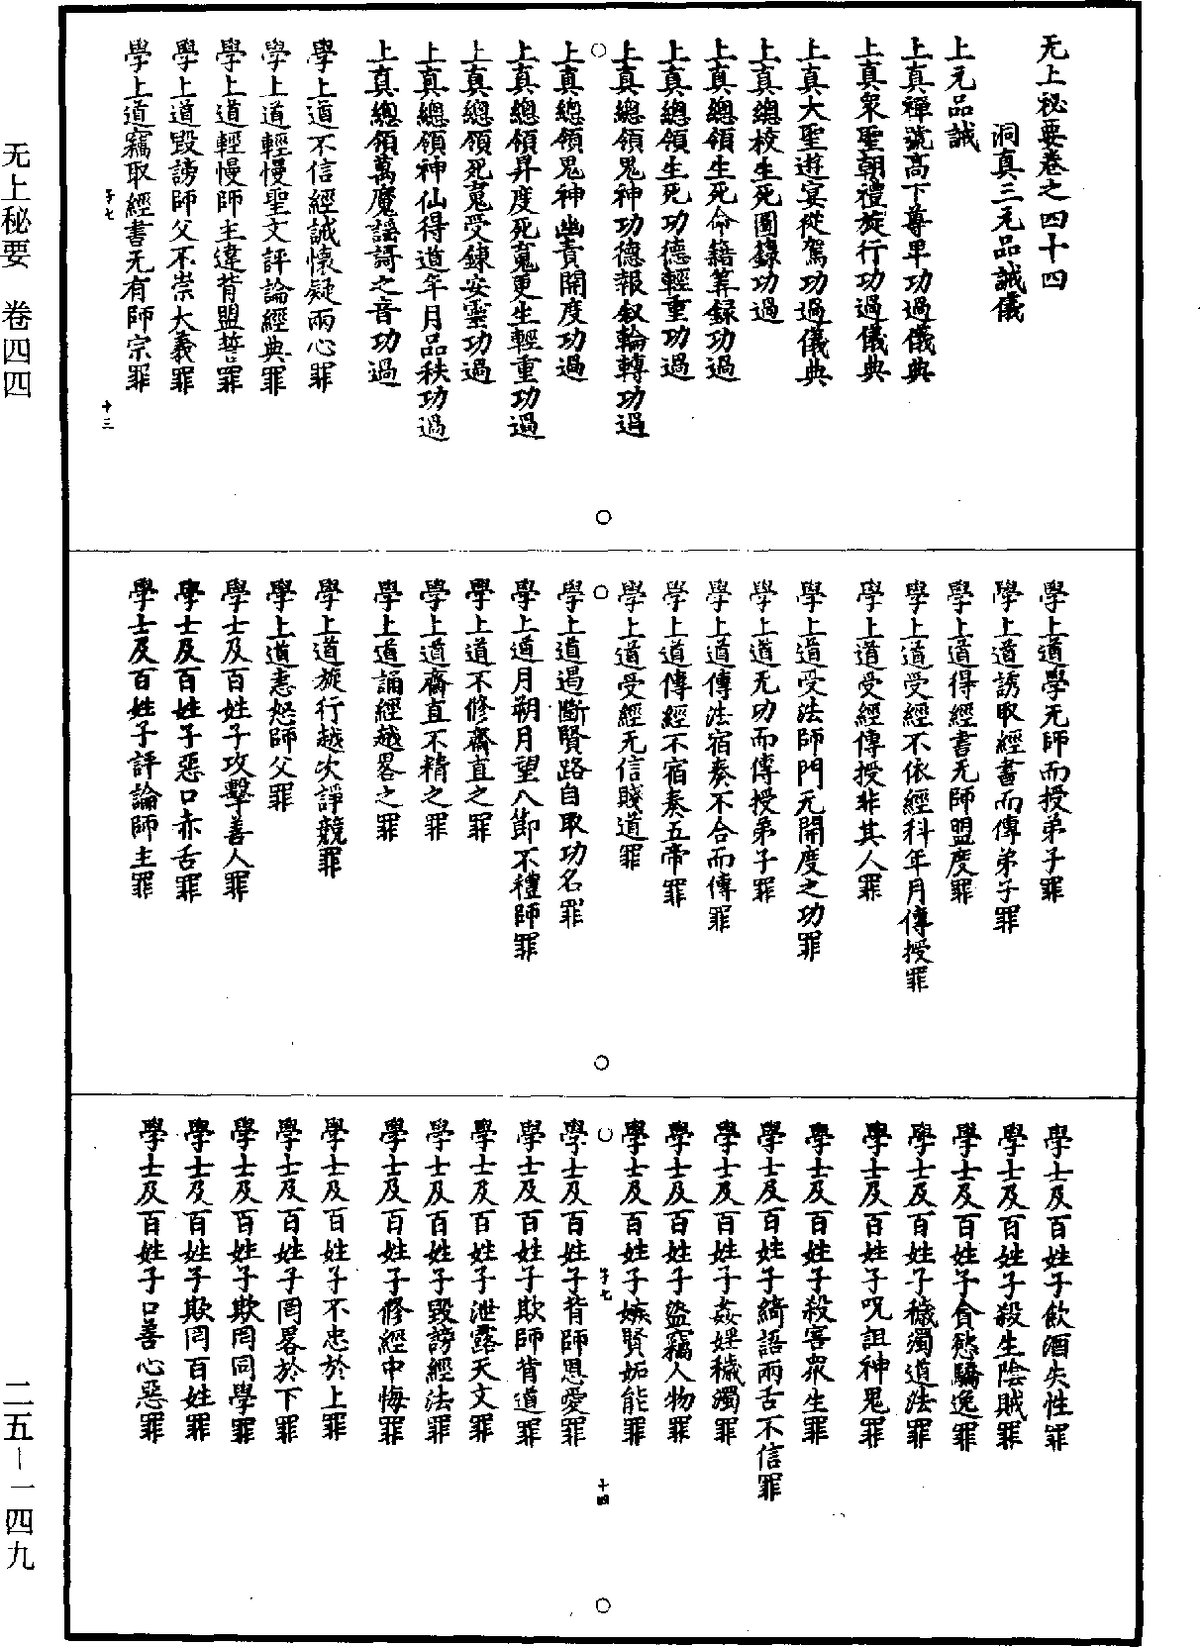 无上秘要卷之四十四
洞真三元品誡儀
上元品誡
上真禪號高下尊卑功過儀典
上真衆聖朝禮旋行功過儀典
上真大聖遊宴從駕功過儀典
上真總校生死圖錄功過
上真總領生死命籍筭録功過
上真總領生死功德輕重功過
上真總領鬼神功德報叙輪轉功過
上真總領鬼神幽責開度功過
上真總領昇度死䰟更生輕重功過
上真總領死䰟受鍊安靈功過
上真總領神仙得道年月品秩功過
上真總領萬魔謡謌之音功過
學上道不信經誡懷疑兩心罪
學上道輕慢聖文評論經典罪
學上道輕慢師主違背盟誓罪
學上道毀謗師父不崇大義罪
學上道竊取經書无有師宗罪
子七
十三
學上道學无師而授弟子罪
學上道誘取經書而傳弟子罪
學上道得經書无師盟度罪
學上道受經不依經科年月傳授罪
學上道受經傳授非其人罪
學上道受法師門无開度之功罪
學上道无功而傳授弟子罪
學上道傳法宿奏不合而傳罪
學上道傳經不宿奏五帝罪
學上道受經无信賤道罪
學上道遏斷賢路自取功名罪
學上道月朔月望八節不禮師罪
學上道不修齋直之罪
學上道齋直不精之罪
學上道誦經越畧之罪
學上道旋行越次諍競罪
學上道恚怒師父罪
學士及百姓子攻擊善人罪
學士及百姓子惡口赤舌罪
學士及百姓子評論師主罪
學士及百姓子飲酒失性罪
學士及百姓子殺生陰賊罪
學士及百姓子貪慾驕逸罪
學士及百姓子穢濁道法罪
學士及百姓子呪詛神鬼罪
學士及百姓子殺害衆生罪
學士及百姓子綺語兩舌不信罪
學士及百姓子姦婬穢濁罪
學士及百姓子盜竊人物罪
學士及百姓子嫉賢妬能罪
子七
十四
學士及百姓子背師恩愛罪
學士及百姓子欺師背道罪
學士及百姓子泄露天文罪
學士及百姓子毀謗經法罪
學士及百姓子修經中悔罪
學士及百姓子不忠於上罪
學士及百姓子罔畧於下罪
學士及百姓子欺罔同學罪
學士及百姓子欺罔百姓罪
學士及百姓子口善心惡罪
无上秘要 卷四四
二五－一四九